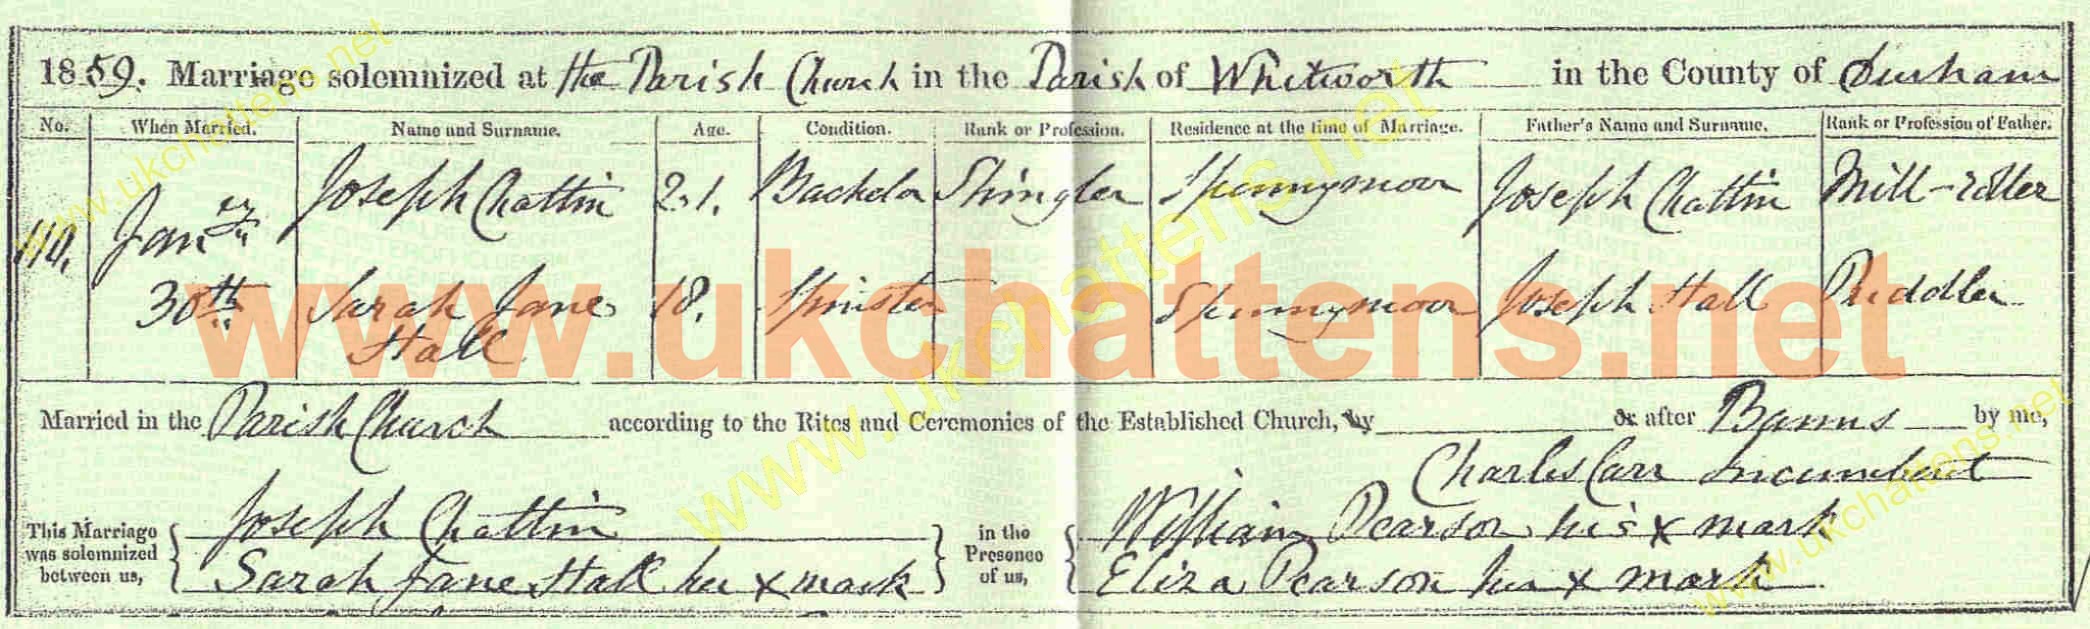 1859. Marriage solemnized at the Parish Church in the Parish of Whitworth in the County of Durham
No. When Married. Name and Surname. Age. Condition. Rank or Profession. Residence at the time of Marriage. Father's Name and Surname. Rank or Profession of Father.
110. Jany 30th Joseph Chattin 21. Bachelor Shingler Spennymoor Joseph Chattin Mill-roller
Sarah Jane Hall 18. Spinster Spennymoor Joseph Hall Puddler
www.ukchattens.net
Married in the Parish Church according to the Rites and Ceremonies of the Established Church, by or after Banns by me,
Charles Carr Incumbent
This Marriage was solemnized between us, Joseph Chattin
Sarah Jane Hall her x mark
in the Presence of us, William Pearson his x mark
Eliza Pearson her x mark
www.ukchattens.net
www.ukchattens.net
www.ukchattens.net